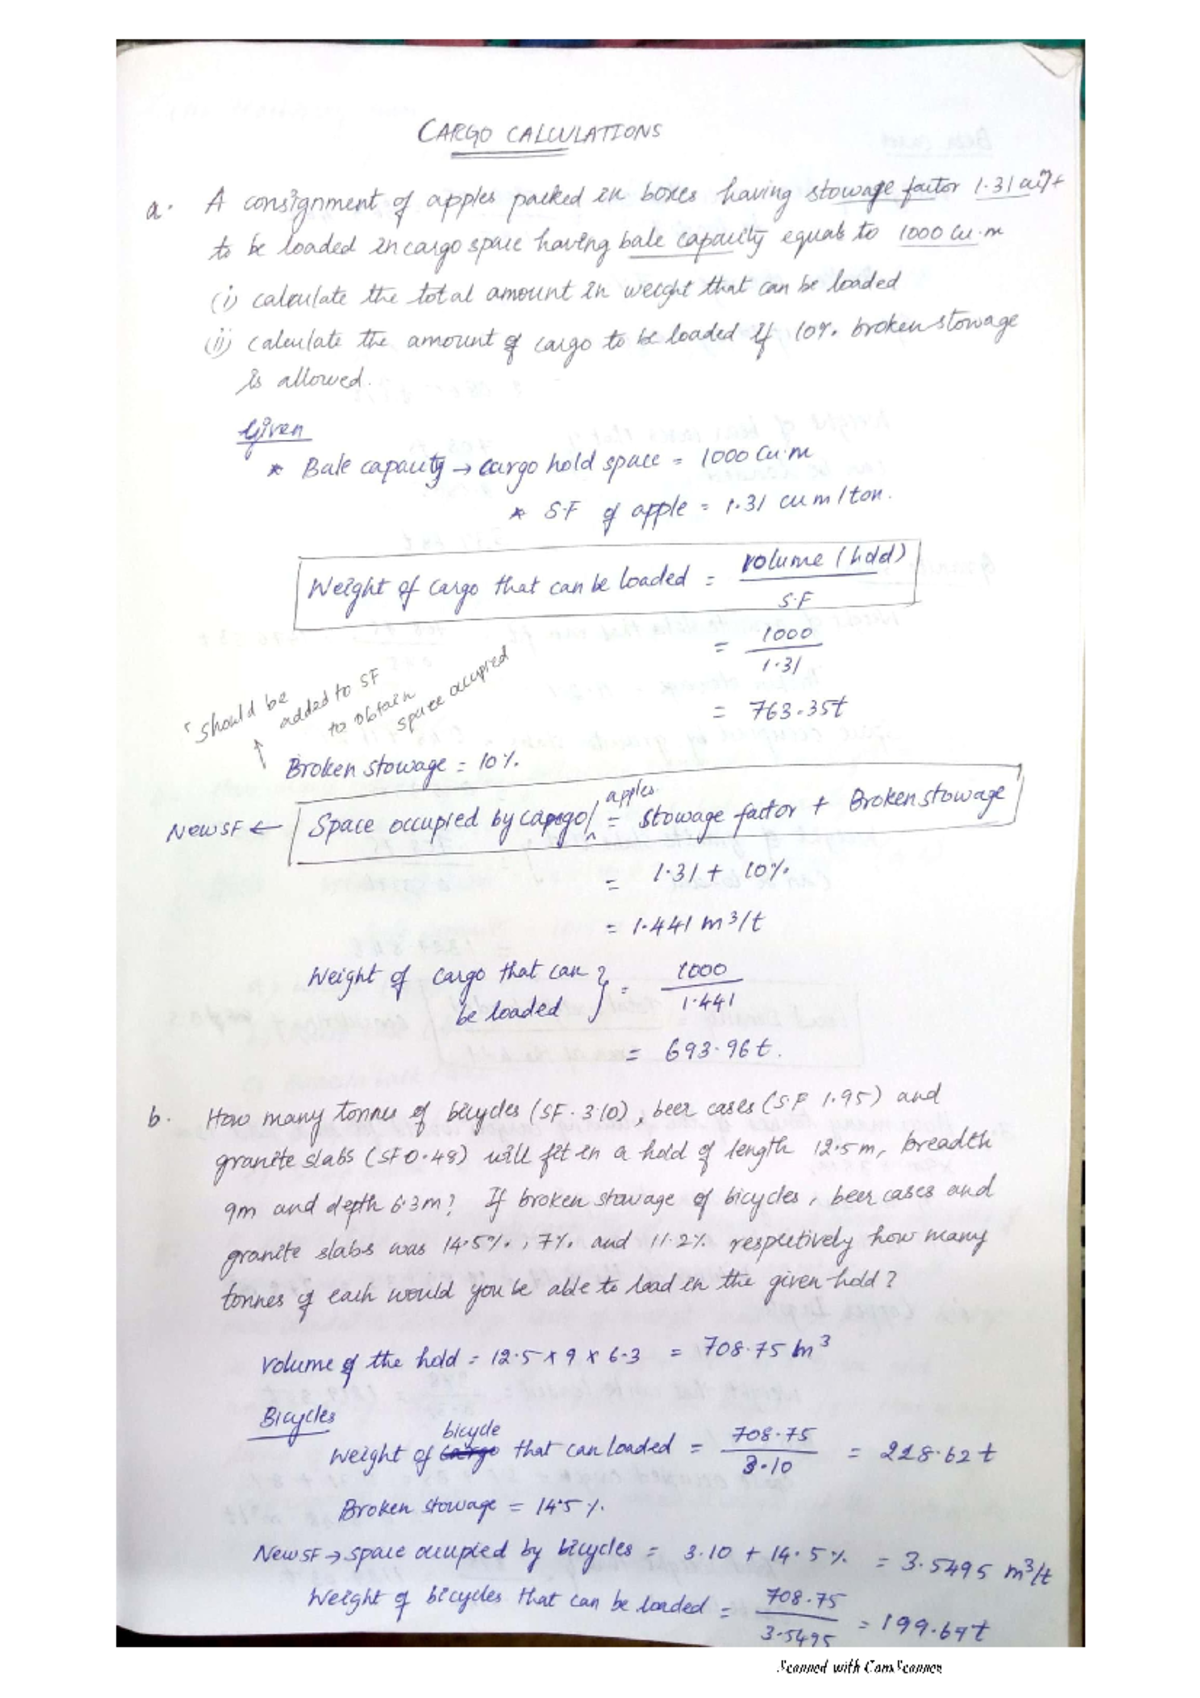 CARGO CALCULATIONS
a. A consignment of apples packed in boxes having stowage factor 1.31 m³/t
to be loaded in cargo space having bale capacity equals to 1000 cu.m
(i) calculate the total amount in weight that can be loaded
(ii) calculate the amount of cargo to be loaded if 10% broken stowage
is allowed.
Given
* Bale capacity → cargo hold space = 1000 cu.m
* S.F of apple = 1.31 cu m/ton.
Weight of cargo that can be loaded = volume (hold)
S.F
= 1000
1.31
= 763.35t
should be
added to SF
to obtain
space occupied
Broken stowage = 10%.
New SF ← Space occupied by cargo/apples = stowage factor + Broken stowage
= 1.31 + 10%
= 1.441 m³/t
Weight of cargo that can } = 1000
be loaded 1.441
= 693.96t.
b. How many tonnes of bicycles (SF. 3.10), beer cases (S.F 1.95) and
granite slabs (SF 0.48) will fit in a hold of length 12.5m, breadth
9m and depth 6.3m? If broken stowage of bicycles, beer cases and
granite slabs was 14.5%, 7% and 11.2% respectively how many
tonnes of each would you be able to load in the given hold?
Volume of the hold = 12.5 x 9 x 6.3 = 708.75 m³
Bicycles
Weight of bicycle that can loaded = 708.75 = 228.62 t
3.10
Broken stowage = 14.5%.
New SF → space occupied by bicycles = 3.10 + 14.5% = 3.5495 m³/t
Weight of bicycles that can be loaded = 708.75 = 199.67t
3.5495
Scanned with CamScanner